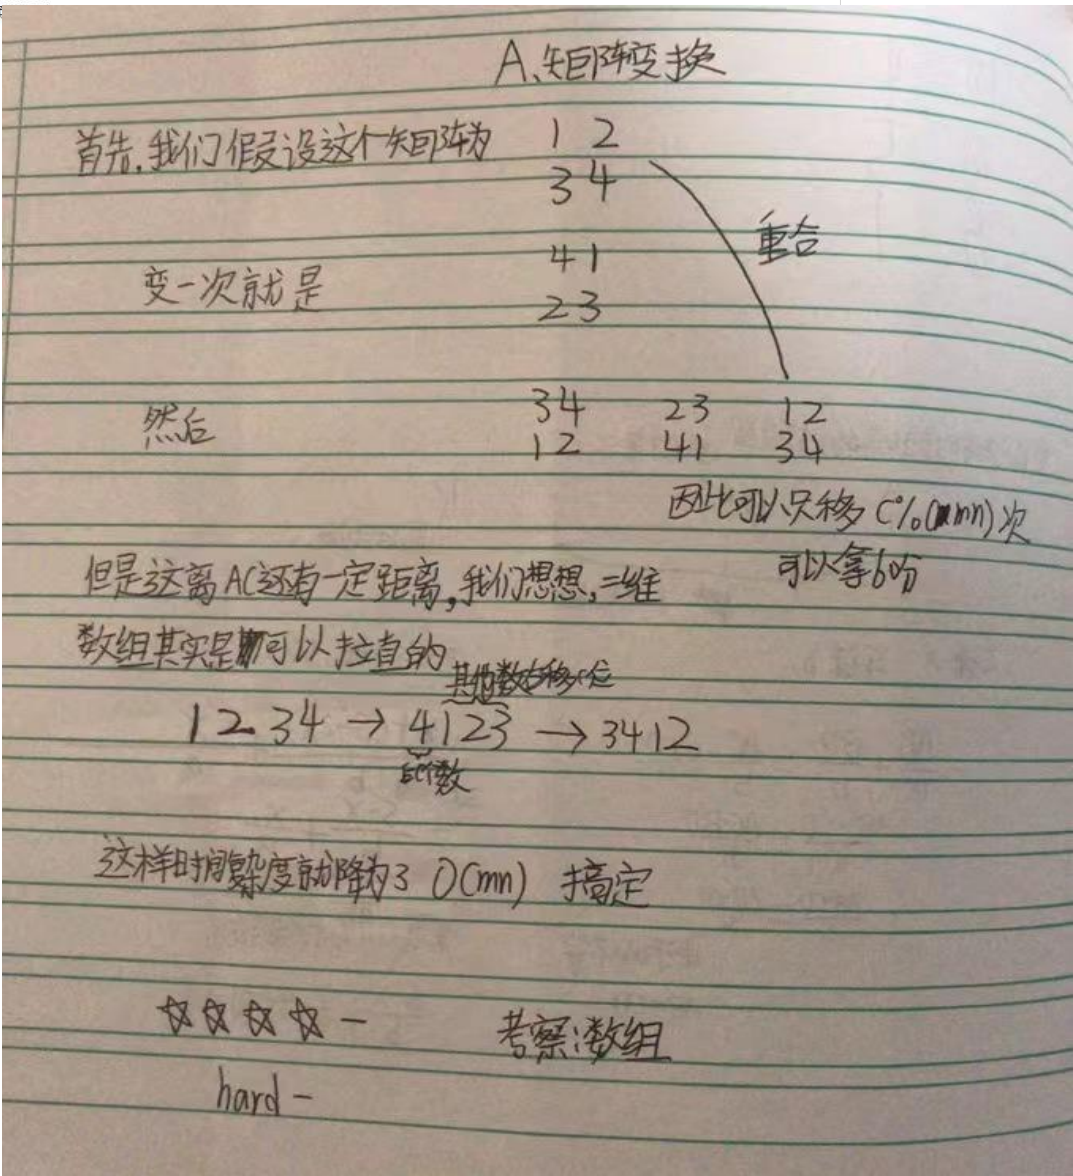 A、矩阵变换
首先,我们假设这个矩阵为 1 2
3 4
重合
4 1
变一次就是
2 3
然后 34 23 12
12 41 34
因此可以只移 C%(mn)次
可以拿60分
但是这离AC还有一定距离,我们想想,二维
数组其实是可以拉直的
其他数右移 位
1 2 3 4 → 4123 → 3412
数
这样时间复杂度就降为了 O(mn) 搞定
☆☆☆☆ - 考察:数组
hard -